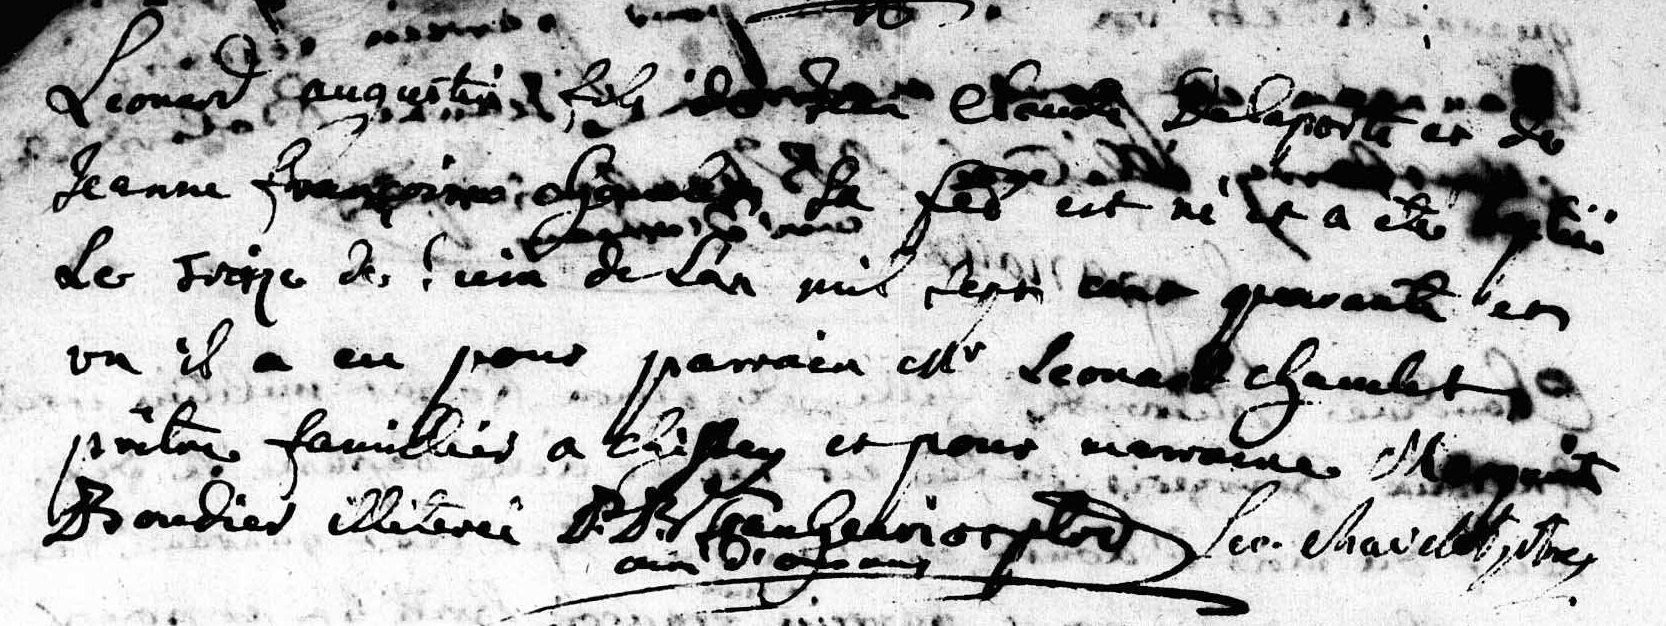 Leonard augustin fils de Jean Claude Delaporte et de
Jeanne françoise sa fe est né et a eté baptisé
Le treize de juin de L'an mil sept cent quarante et
un il a eu pour parrain Mr Leonard chavelet
prêtre familier a chissey et pour marraine Marguerite
Boudier illiteré
Leo. chavelet ptre